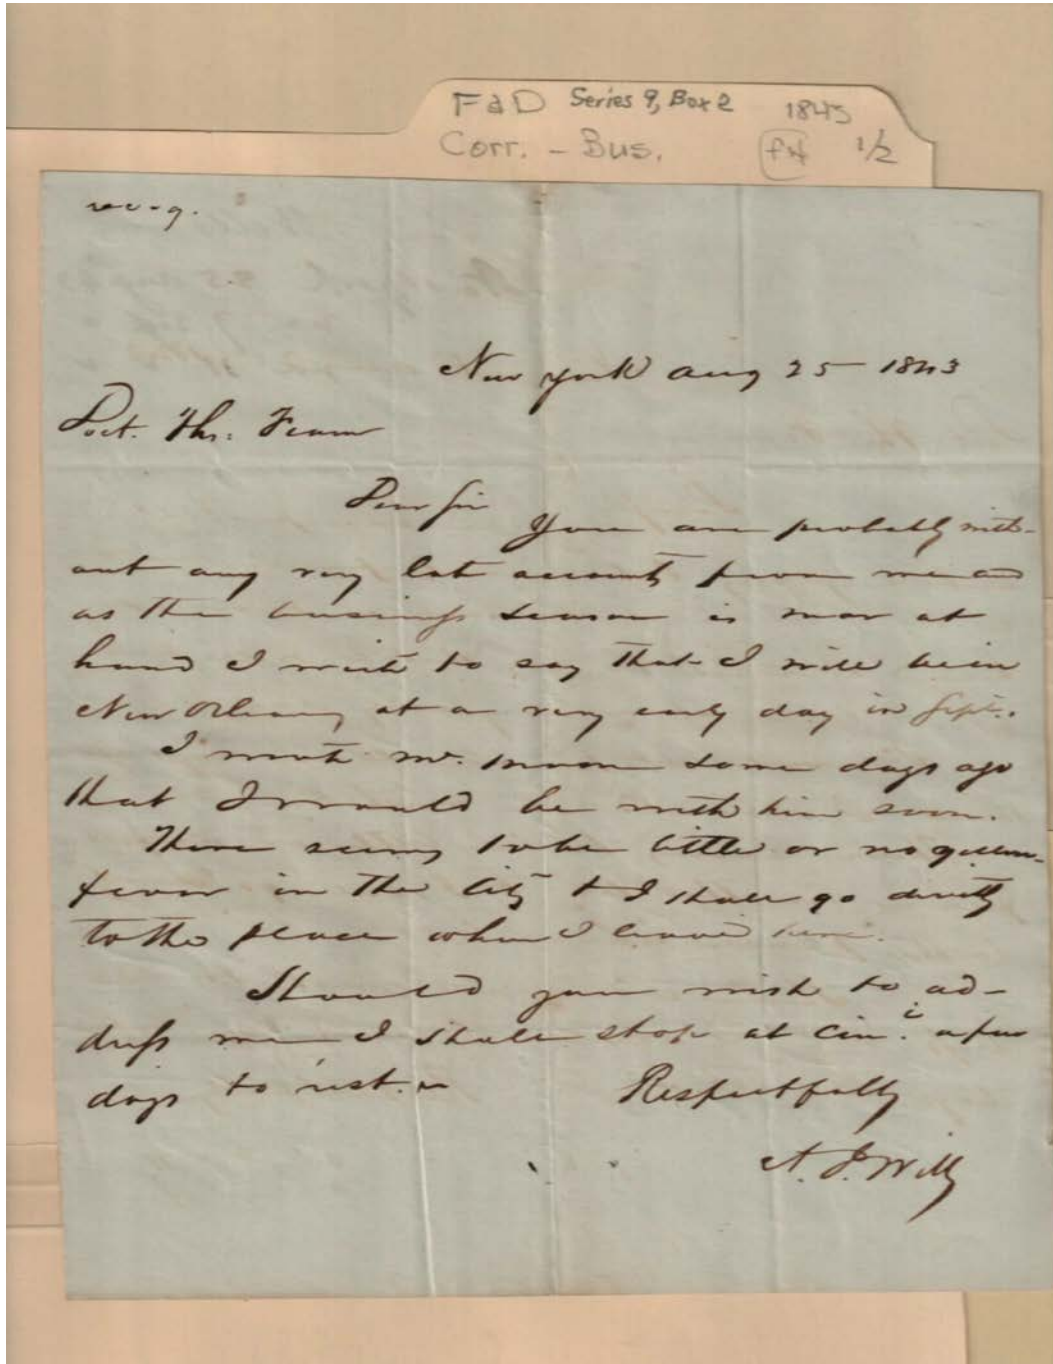 F&D Series 9, Box 2 1843
Corr. - Bus. 1/2
New York Aug 25 1843
Doct. Ths. Fearn
Dear Sir
You are probably with-
out any very late accounts from me and
as the business season is near at
hand I write to say that I will be in
New Orleans at a very early day in Sept.
I wrote Mr. some days ago
that I would be with him soon.
There seems to be little or no yellow
fever in the City & I shall go directly
to the place when I leave here.
Should you wish to ad-
dress me I shall stop at Cin.i a few
days to rest.
Respectfully